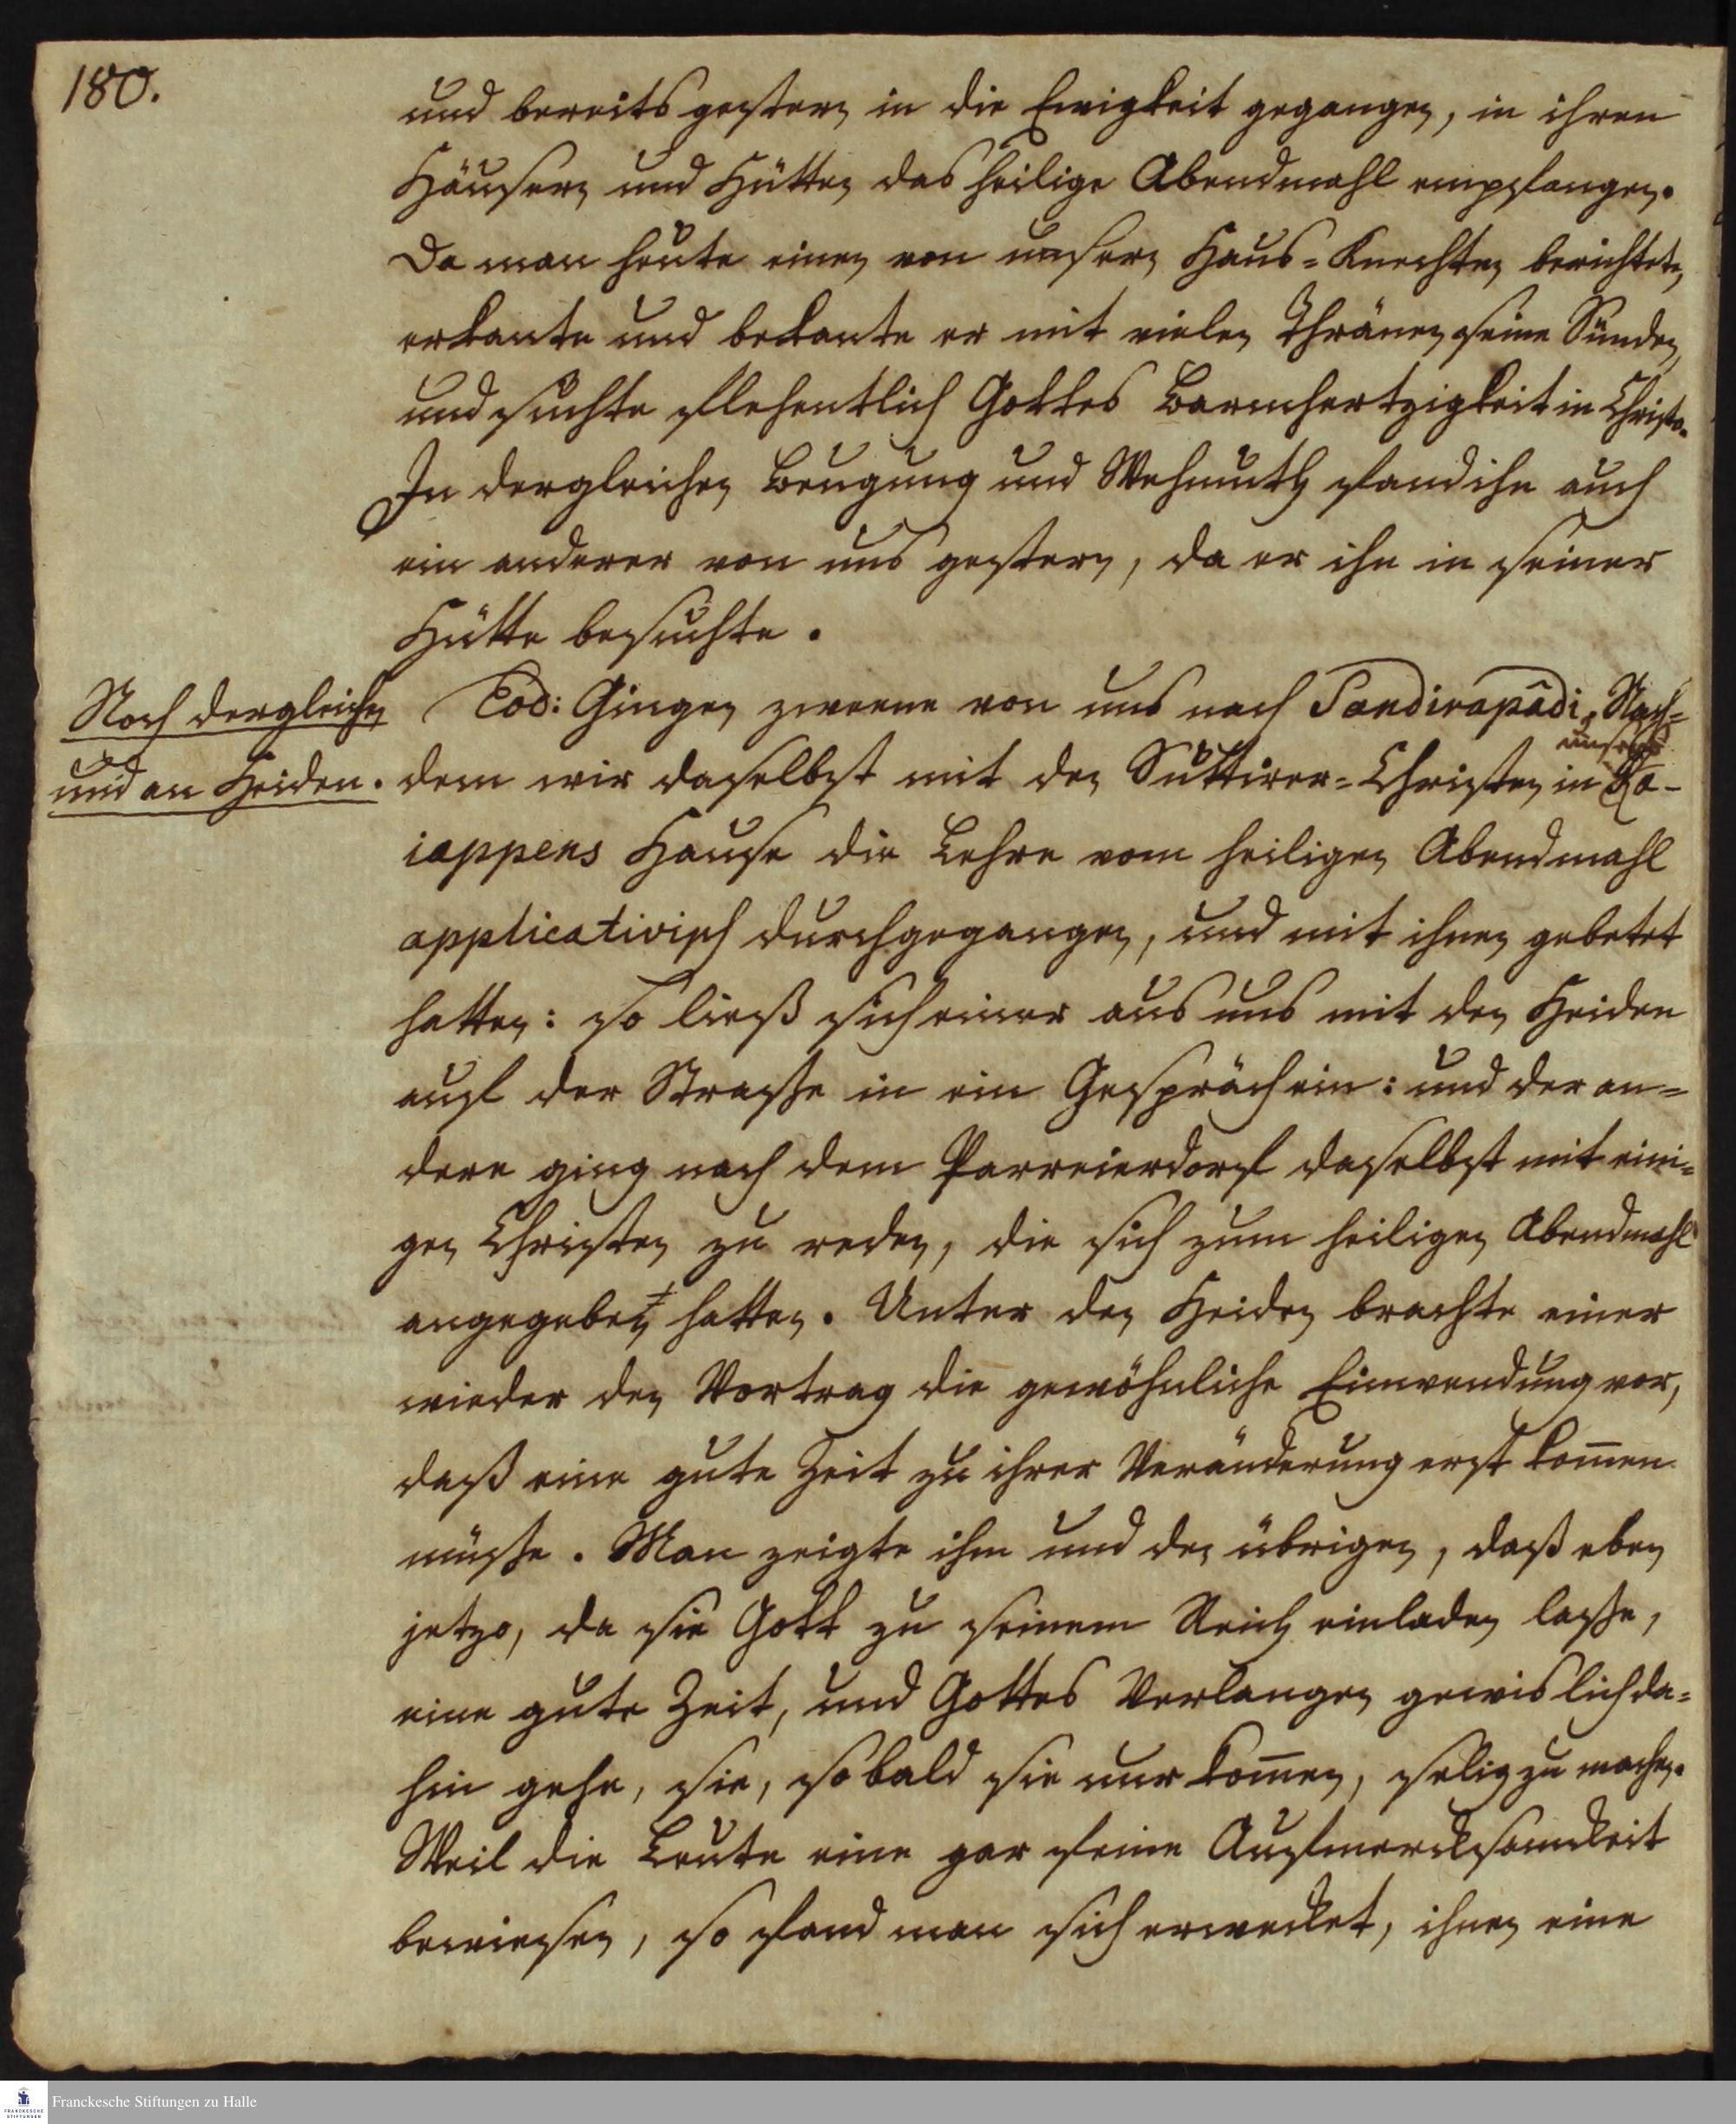 180.
und bereits gestern in die Ewigkeit gegangen, in ihren
Häusern und Hütten das heilige Abendmahl empfangen.
Da man heute einen von unsern Haus-Knechten berichtete,
erkante und bekante er mit vielen Thränen seine Sünden,
und suchte flehentlich Gottes Barmhertzigkeit in Christo.
In dergleichen Beugung und Wehmuth fand ihn auch
ein anderer von uns gestern, da er ihn in seiner
Hütte besuchte.
Noch dergleichen
und an Heiden.
Eod: Gingen zweene von uns nach Sandirapâdi. Nach-
dem wir daselbst mit den Suttirer-Christen in unsers Ra-
iappens Hause die Lehre vom heiligen Abendmahl
applicativisch durchgegangen, und mit ihnen gebetet
hatten: so ließ sich einer aus uns mit den Heiden
auf der Strasse in ein Gespräch ein: und der an-
dere ging nach dem Parreierdorf daselbst mit eini-
gen Christen zu reden, die sich zum heiligen Abendmahl
angegeben hatten. Unter den Heiden brachte einer
wieder den Vortrag die gewöhnliche Einwendung vor,
daß eine gute Zeit zu ihrer Veränderung erst kom̅en
müsse. Man zeigte ihm und den übrigen, daß eben
jetzo, da sie Gott zu seinem Reich einladen lasse,
eine gute Zeit, und Gottes Verlangen gewislich da-
hin gehe, sie, so bald sie nur kom̅en, selig zu machen.
Weil die Leute eine gar feine Aufmercksamkeit
bewiesen, so fand man sich erwecket, ihnen eine
Franckesche Stiftungen zu Halle